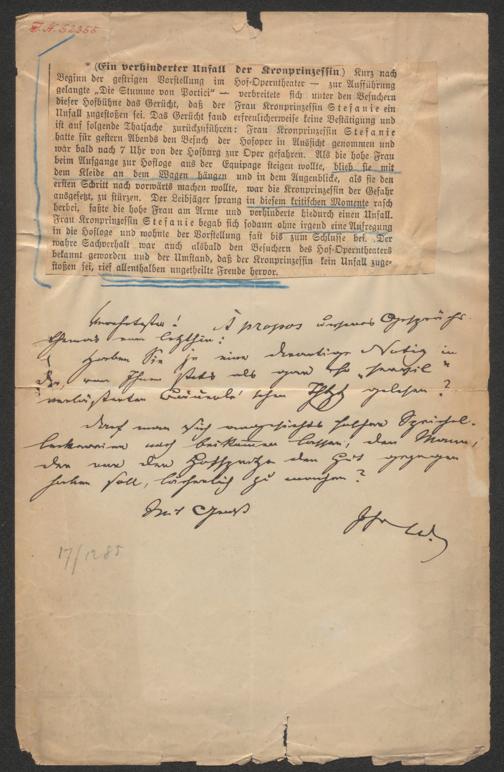 I. N. 52355
* (Ein verhinderter Unfall der Kronprinzessin.) Kurz nach
Beginn der gestrigen Vorstellung im Hof-Operntheater — zur Aufführung
gelangte „Die Stumme von Portici“ — verbreitete sich unter den Besuchern
dieser Hofbühne das Gerücht, daß der Frau Kronprinzessin Stefanie ein
Unfall zugestoßen sei. Das Gerücht fand erfreulicherweise keine Bestätigung und
ist auf folgende Thatsache zurückzuführen: Frau Kronprinzessin Stefanie
hatte für gestern Abends den Besuch der Hofoper in Aussicht genommen und
war bald nach 7 Uhr von der Hofburg zur Oper gefahren. Als die hohe Frau
beim Aufgange zur Hofloge aus der Equipage steigen wollte, blieb sie mit
dem Kleide an dem Wagen hängen und in dem Augenblicke, als sie den
ersten Schritt nach vorwärts machen wollte, war die Kronprinzessin der Gefahr
ausgesetzt, zu stürzen. Der Leibjäger sprang in diesem kritischen Momente rasch
herbei, faßte die hohe Frau am Arme und verhinderte hiedurch einen Unfall.
Frau Kronprinzessin Stefanie begab sich sodann ohne irgend eine Aufregung
in die Hofloge und wohnte der Vorstellung fast bis zum Schlusse bei. Der
wahre Sachverhalt war auch alsbald den Besuchern des Hof-Operntheaters
bekannt geworden und der Umstand, daß der Kronprinzessin kein Unfall zuge-
stoßen sei, rief allenthalben ungetheilte Freude hervor.
Verehrtester! À propos unseres Gesprächs-
themas von letzthin:
Haben Sie je eine derartige Notiz in
der von Ihnen stets als gar so „servil“
verlästerten 'schen gelesen?
Darf man sich angesichts solcher Speichel-
leckereien noch beikommen lassen, den Mann,
der vor den Hofspritze den Hut gezogen
haben soll, lächerlich zu machen?
Mit Gruß
Ihr
17/12 85